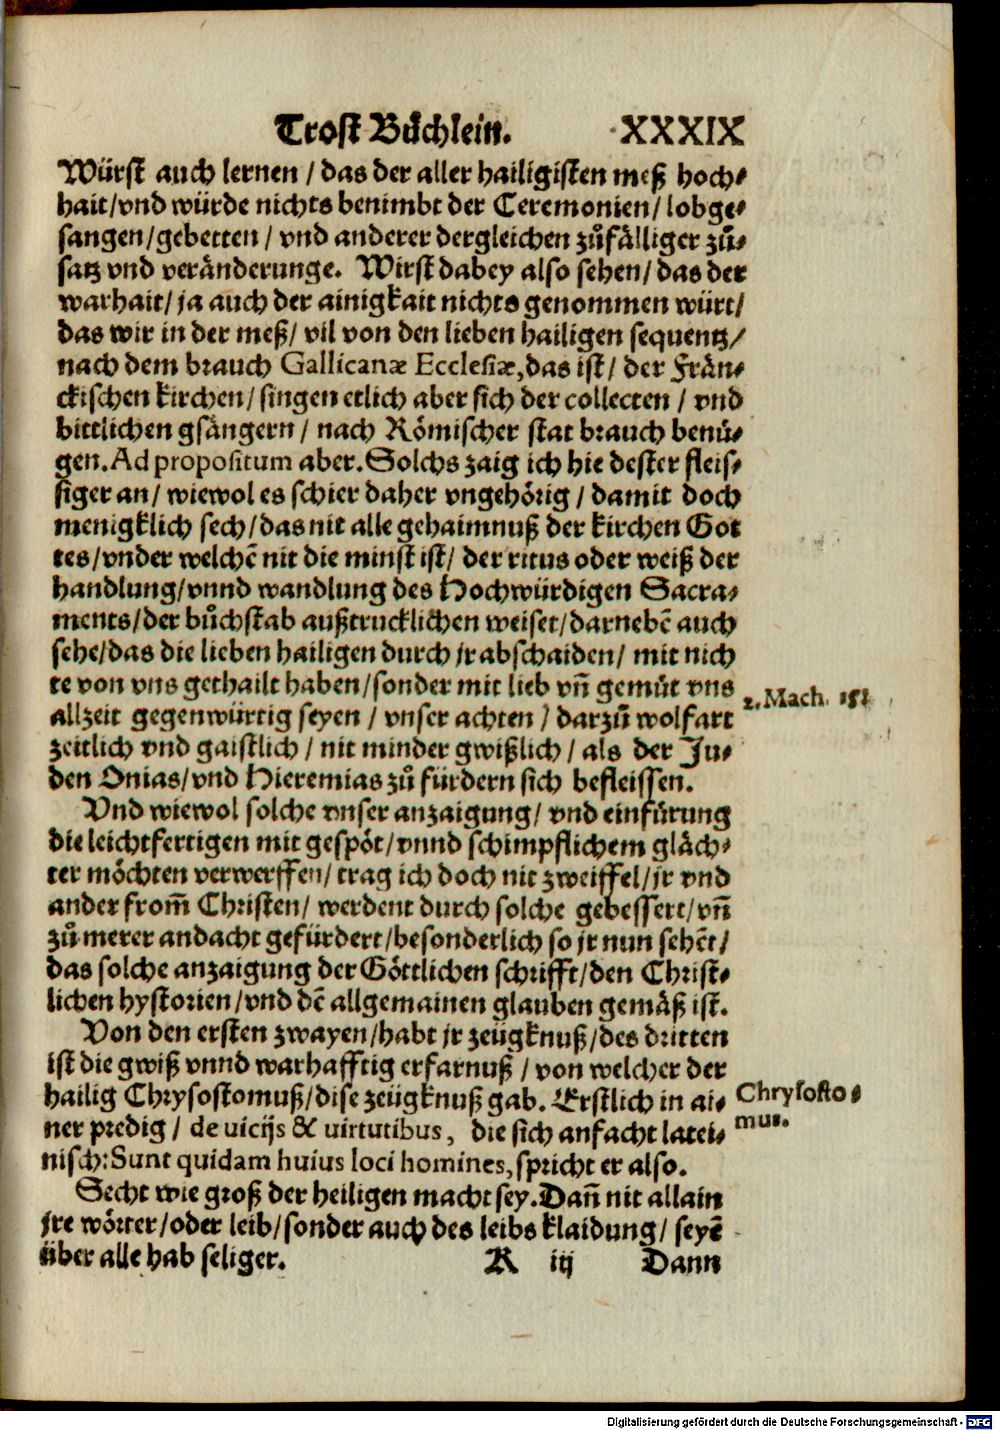 Trost Bůchlein. XXXIX
Würst auch lernen / das der aller hailigisten meß hoch-
hait/vnd würde nichts benimbt der Ceremonien/ lobge-
sangen/gebetten / vnd anderer dergleichen zůfälliger zů-
satz vnd veränderunge. Wirst dabey also sehen/ das der
warhait/ ja auch der ainigkait nichts genommen würt/
das wir in der meß/ vil von den lieben hailigen sequentz/
nach dem brauch Gallicanæ Ecclesiæ,das ist/ der Frän-
ckischen kirchen/ singen etlich aber sich der collecten / vnd
bittlichen gsängern / nach Römischer stat brauch benü-
gen.Ad propositum aber.Solchs zaig ich hie dester fleis-
siger an/ wiewol es schier daher vngehörig / damit doch
menigklich sech/das nit alle gehaimnuß der kirchen Got
tes/vnder welchē nit die minst ist/ der ritus oder weiß der
handlung/vnnd wandlung des Hochwürdigen Sacra-
ments/der bůchstab außtrucklichen weiset/darnebē auch
sehe/das die lieben hailigen durch jr abschaiden/ mit nich
te von vns gethailt haben/sonder mit lieb vñ gemüt vns
allzeit gegenwürtig seyen / vnser achten / darzů wolfart
zeitlich vnd gaistlich / nit minder gwißlich / als der Ju-
den Onias/vnd Hieremias zů fürdern sich befleissen.
2. Mach. 15
Vnd wiewol solche vnser anzaigung/ vnd einfürung
die leichtfertigen mit gespöt/vnnd schimpflichem gläch-
ter möchten verwerffen/ trag ich doch nit zweiffel/jr vnd
ander from̄ Christen/ werdent durch solche gebessert/vñ
zů merer andacht gefürdert/besonderlich so jr nun sehēt/
das solche anzaigung der Göttlichen schrifft/den Christ-
lichen hystorien/vnd dē allgemainen glauben gemäß ist.
Von den ersten zwayen/habt jr zeügknuß/des dritten
ist die gwiß vnnd warhafftig erfarnuß / von welcher der
hailig Chrysostomuß/dise zeügknuß gab. Erstlich in ai-
ner predig / de vicijs & virtutibus, die sich anfacht latei-
nisch:Sunt quidam huius loci homines,spricht er also.
Chrysosto-
mus.
Secht wie groß der heiligen macht sey.Dañ nit allain
jre wörter/oder leib/sonder auch des leibs klaidung/ seyē
über alle hab seliger. K iij Dann
Digitalisierung gefördert durch die Deutsche Forschungsgemeinschaft - DFG